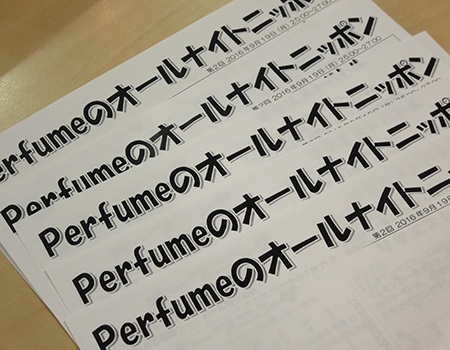 Perfumeのオールナイトニッポン
第2回 2016年9月19日(月) 25:00~27:00
Perfumeのオールナイトニッポン
第2回 2016年9月19日(月) 25:00~27:00
Perfumeのオールナイトニッポン
Perfumeのオールナイトニッポ
Perfumeのオールナイトニッ
第2回 2016年9月19日